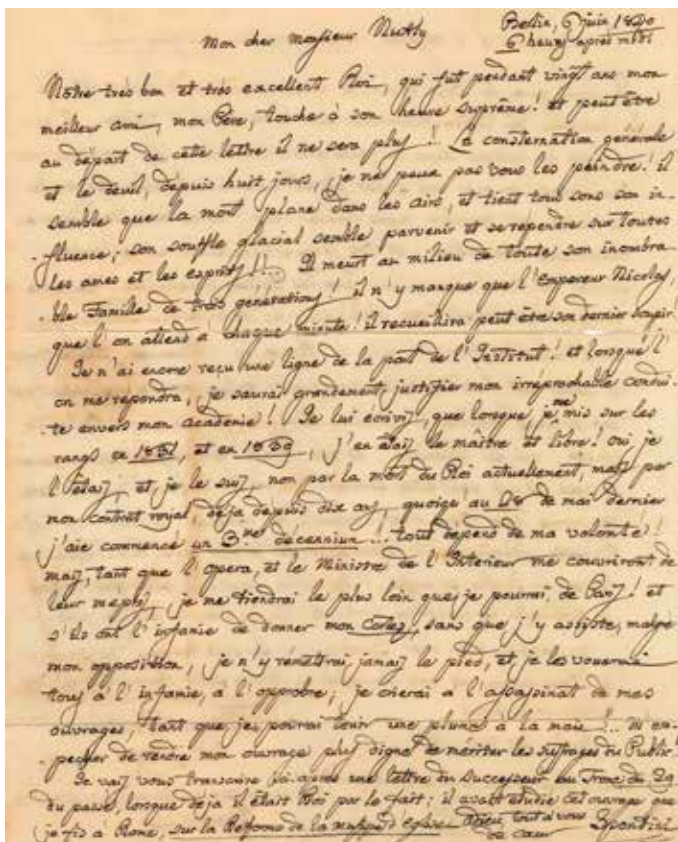 Berlin, 6 juin 1840
6 heures après midi
Mon cher monsieur
Nôtre très bon et très excellent Roi, qui fut pendant vingt ans mon
meilleur ami, mon Père, touche à son heure suprême! et peut être
au départ de cette lettre il ne sera plus!! La consternation générale
et le deuil, depuis huit jours, je ne peux pas vous les peindre! il
semble que la mort plane dans les airs, et tient tous sous son in-
-fluence; son souffle glacial semble parvenir et se répendre sur toutes
les ames et les esprits!!.. Il meurt au milieu de toute son inombra-
-ble Famille de trois générations! il n'y manque que l'Empereur Nicolas,
que l'on attend à chaque minute! il recueillira peut être son dernier soupir!
Je n'ai encore reçu une ligne de la part de l'Institut! et lorsque l'
on me répondra, je saurai grandement justifier mon irréprochable condui-
-te envers mon académie! Je lui écrivis, que lorsque je me mis sur les
rangs en 1831, et en 1839, j'en étais le maître et libre! oui je
l'étais, et je le suis, non par la mort du Roi actuellement, mais par
mon contrat royal, déja depuis dix ans, quoiqu'au 28 de mai dernier
j'aie commencé un 3.me décennium!.. tout dépend de ma volonté!
mais, tant que l'opera, et le Ministre de l'Interieur me couvriront de
leur mépris, je me tiendrai le plus loin que je pourrai, de Paris! et
s'ils ont l'infamie de donner mon Cortez, sans que j'y assiste, malgré
mon opposition, je n'y remettrai jamais le pied, et je les vouerai
tous à l'infamie, à l'opprobre; je crierai a l'assassinat de mes
ouvrages, tant que je pourrai tenir une plume à la main!.. m'em-
pecher de rendre mon ouvrage plus digne de meriter les suffrages du Public!
Je vais vous transcrire ci-après une lettre du successeur au Trone du 29
du passé, lorsque déja il était Roi par le fait; il avait étudié cet ouvrage que
je fis a Rome, sur la Reforme de la musique d'église. adieu tout à vous
de cœur Spontini